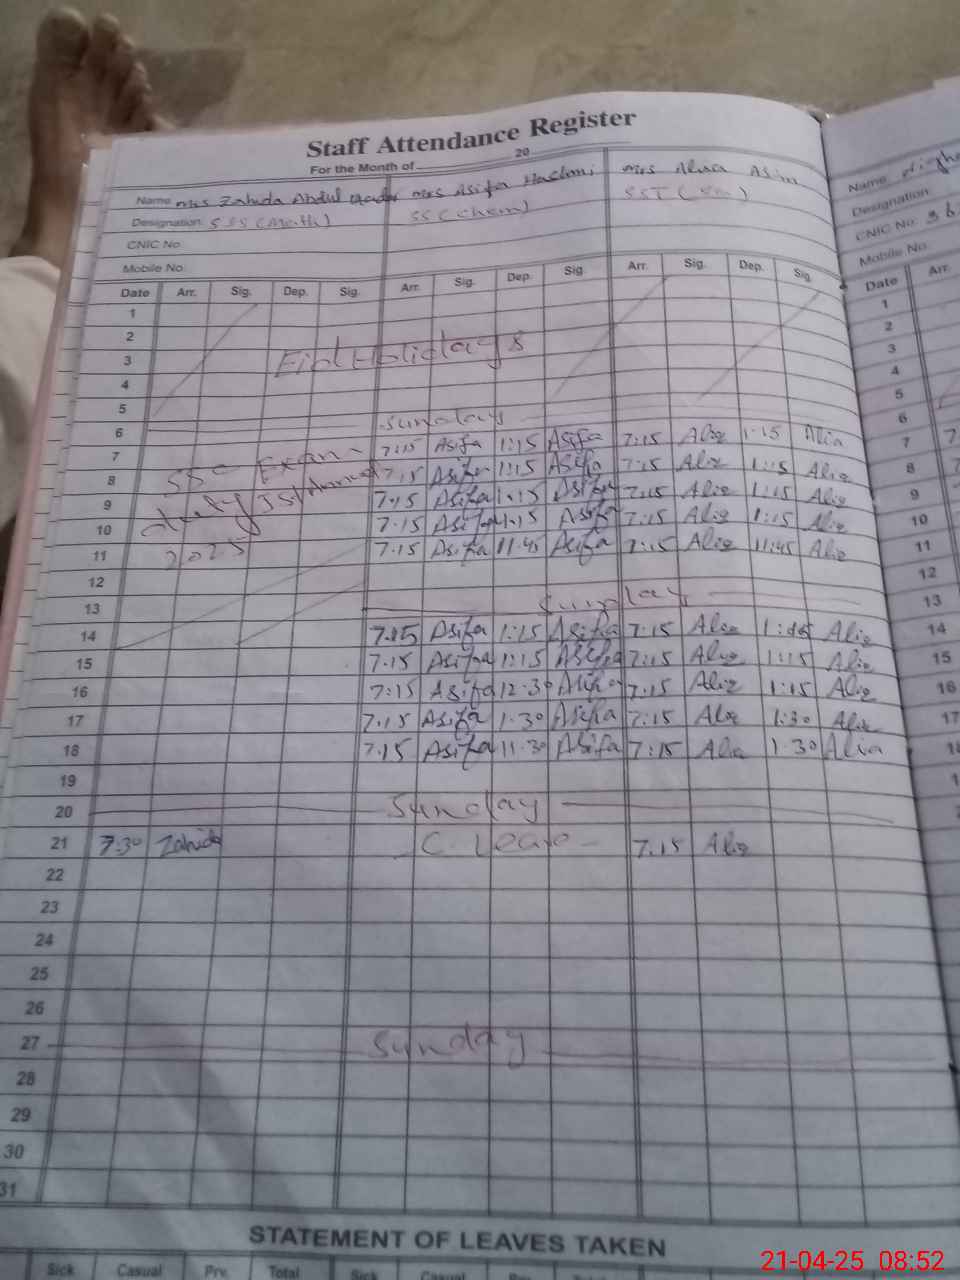 Staff Attendance Register
For the Month of 20
Name Mrs Zahida Abdul Mrs Asifa Hashmi Mrs Alina Asim
Designation: SSS (Math) SS (Chem) SST (
CNIC No
Mobile No:
Date Arr. Sig. Dep. Sig. Arr. Sig. Dep. Sig. Arr. Sig. Dep. Sig.
1
2
3 Eid Holidays
4
5
6 Sunday
7 SSC Exam 7:15 Asifa 1:15 Asifa 7:15 Alia 1:15 Alia
8 duty 1st Annual 7:15 Asifa 1:15 Asifa 7:15 Alia 1:15 Alia
9 7:15 Asifa 1:15 Asifa 7:15 Alia 1:15 Alia
10 2025 7:15 Asifa 1:15 Asifa 7:15 Alia 1:15 Alia
11 7:15 Asifa 11:45 Asifa 7:15 Alia 11:45 Alia
12
13 Sunday
14 7:15 Asifa 1:15 Asifa 7:15 Alia Alia
15 7:15 Asifa 1:15 Asifa 7:15 Alia 1:15 Alia
16 7:15 Asifa 12:30 Asifa 7:15 Alia 1:15 Alia
17 7:15 Asifa 1:30 Asifa 7:15 Alia 1:30 Alia
18 7:15 Asifa 11:30 Asifa 7:15 Alia 1:30 Alia
19
20 Sunday
21 7:30 Zahida C. Leave 7:15 Alia
22
23
24
25
26
27 Sunday
28
29
30
31
STATEMENT OF LEAVES TAKEN
Sick Casual Prv. Total Sick Casual
Name
Designation:
CNIC No: 36
Mobile No.
Date Arr.
1
2
3
4
5
6
7 7
8
9
10
11
12
13
14
15
16
17
21-04-25 08:52